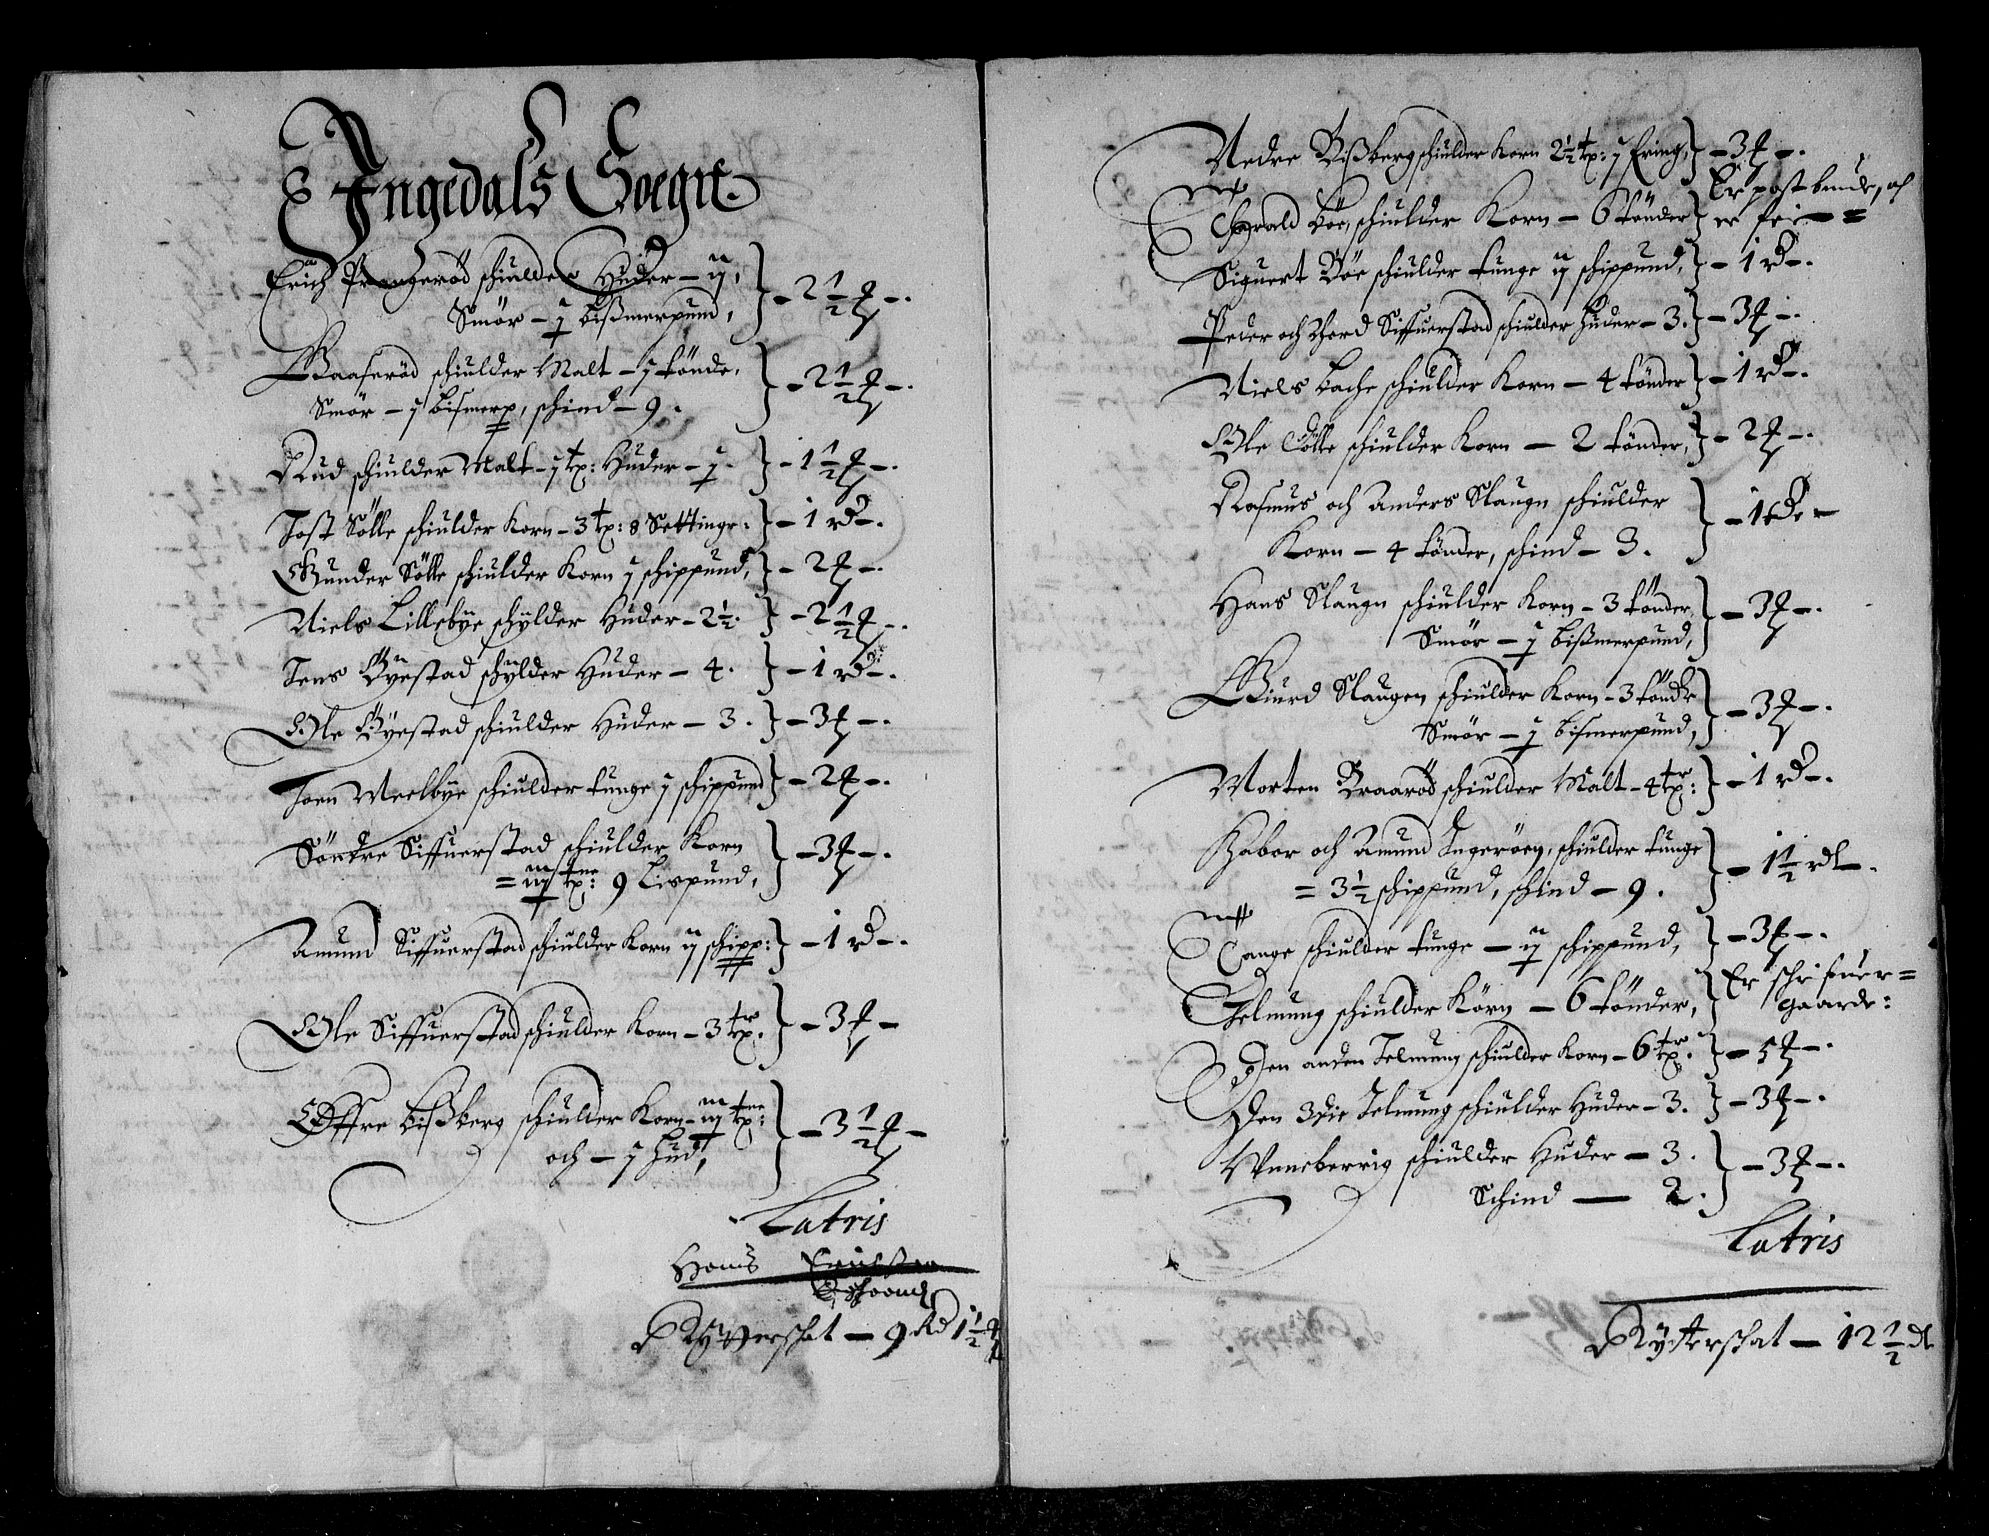 Ingedals Soegn.
Erich Prangerød schiulder Huder – ij,
Smör – j bißmerpund, } – 2 1/2 ort –.
Gaaserød schiulder Malt – j tönde,
Smör – j bismerp, schind – 9. } – 2 1/2 ort –.
Rud schiulder Malt – j tp: Huder – j. } – 1 1/2 ort –.
Jost Sölle schiulder Korn – 3 tp: 8 Settinge: } – 1 rd –.
Gunder Sölle schiulder Korn j schippund, } – 2 ort –.
Niels Lillebye schylder Huder – 2 1/2. } – 2 1/2 ort –.
Jens Byestad schylder Huder – 4. } – 1 rd –.
Ole Byestad schiulder Huder – 3. } – 3 ort –.
Joen Meelbye schiulder tunge j schippund } – 2 ort –.
Söndre Siffuerstad schiulder Korn
= iij tp: 9 Lispund, } – 3 ort –.
Amund Siffuerstad schiulder Korn ij schipp: } – 1 rd –.
Ole Siffuerstad schiulder Korn – 3 tp. } – 3 ort –
Öffre Bißberg schiulder Korn – iij tp:
och – j hud, } – 3 1/2 ort –
Latris
Hans
Rytterschat – 9 Rd 1 1/2 ort
Nedre Bißberg schiulder Korn 2 1/2 tp: j Fring, } – 3 ort –.
Harald Böe, schiulder Korn – 6 tönder } Er post bunde, och
er fri – =
Siguert Böe schiulder tunge ij schippund, } – 1 rd –.
Peder och Siffuerstad schiulder huder – 3. } – 3 ort –.
Niels Bache schiulder Korn – 4 tönder } – 1 rd –.
Ole Sölle schiulder Korn – 2 tönder, } – 2 ort –.
Rasmus och Anders Slaugn schiulder
Korn – 4 tönder, schind – 3. } – 1 rd –
Hans Slaugn schiulder Korn – 3 tönder,
Smör – j bißmerpund, } – 3 ort –.
Giurd Slaugen schiulder Korn – 3 tönder
Smör – j bismerpund, } – 3 ort –.
Morten Braarød schiulder Malt – 4 tp: } – 1 rd –.
Gabor och Amund Ingerøen, schiulder tunge
= 3 1/2 schippund, schind – 9. } – 1 1/2 rdl –.
Tange schiulder tunge – ij schippund, } – 3 ort –.
Jelmung schiulder Körn – 6 tönder, } Er schrifuer =
gaarde:
Den anden Jelmung schiulder Korn – 6 tp. } – 5 ort –.
Den 3die Jelmung schiulder Huder – 3. } – 3 ort –.
Vnneberrig schiulder Huder – 3.
Schind — 2. } – 3 ort –.
Latris
Rytterschat – 12 1/2 dl